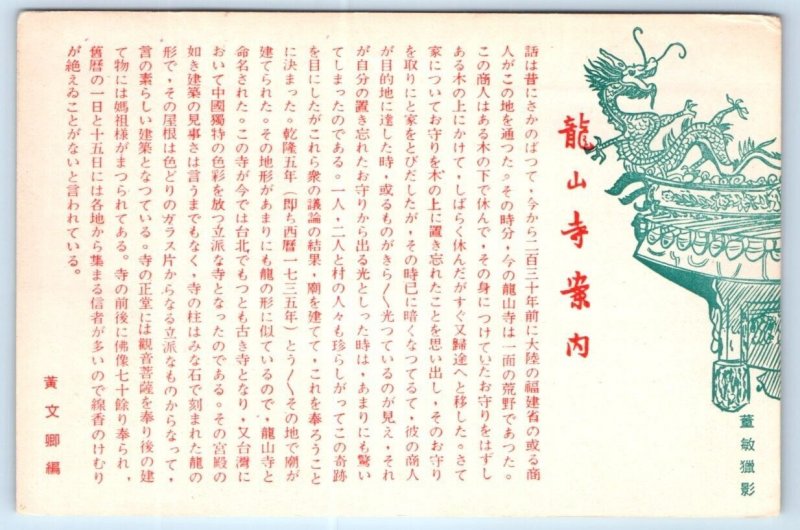 龍山寺案内
話は昔にさかのぼつて，今から二百三十年前に大陸の福建省の或る商
人がこの地を通つた。その時分，今の龍山寺は一面の荒野であつた。
この商人はある木の下で休んで，その身につけていたお守りをはずし
ある木の上にかけて，しばらく休んだがすぐ又歸途へと移した。さて
家についてお守りを木の上に置き忘れたことを思い出し，そのお守り
を取りにと家をとびだしたが，その時已に暗くなつてるて，彼の商人
が目的地に達した時，或るものがきら〱光つているのが見え，それ
が自分の置き忘れたお守りから出る光としった時は，あまりにも驚い
てしまったのである。一人，二人と村の人々も珍らしがってこの奇跡
を目にしたがこれら衆の議論の結果，廟を建てて，これを奉ろうこと
に決まった。乾隆五年（即ち西曆一七三五年）とう〱その地で廟が
建てられた。その地形があまりにも龍の形に似ているので，龍山寺と
命名された。この寺が今では台北でもつとも古き寺となり，又台灣に
おいて中國獨特の色彩を放つ立派な寺となったのである。その宮殿の
如き建築の見事さは言うまでもなく，寺の柱はみな石で刻まれた龍の
形で，その屋根は色どりのガラス片からなる立派なものからなって，
言の素らしい建築となつている。寺の正堂には觀音菩薩を奉り後の建
て物には媽祖樣がまつられてある。寺の前後に佛像七十餘り奉られ，
舊曆の一日と十五日には各地から集まる信者が多いので線香のけむり
が絶えゐことがないと言われている。
黃文卿編
董敏獵影